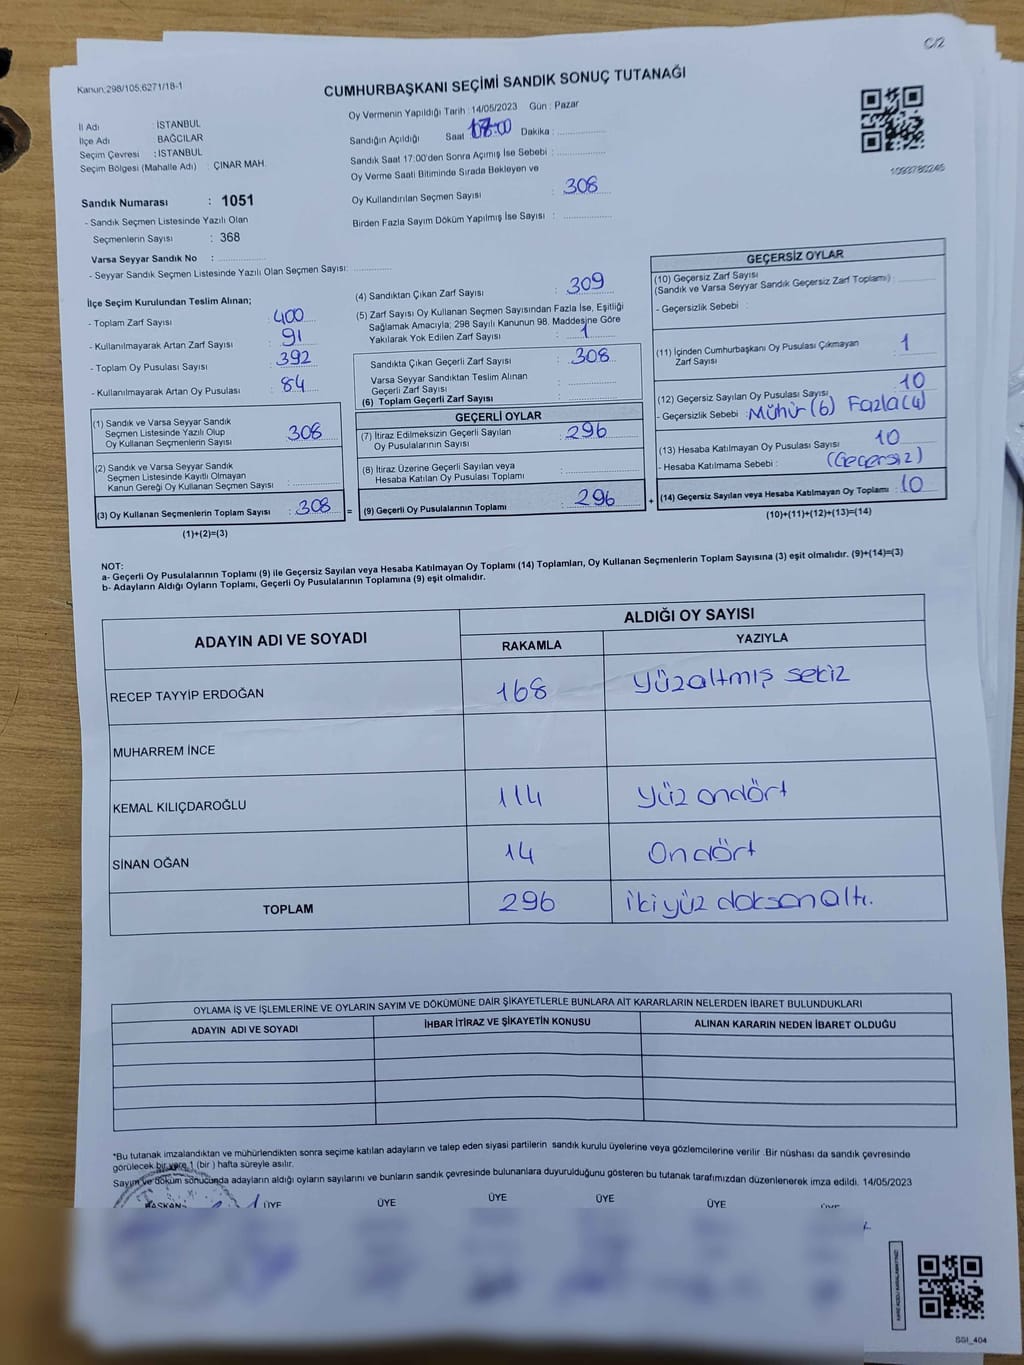 C/2
Kanun:298/105,6271/18-1
CUMHURBAŞKANI SEÇİMİ SANDIK SONUÇ TUTANAĞI
İl Adı : İSTANBUL
İlçe Adı : BAĞCILAR
Seçim Çevresi : İSTANBUL
Seçim Bölgesi (Mahalle Adı) : ÇINAR MAH.
Oy Vermenin Yapıldığı Tarih : 14/05/2023 Gün : Pazar
Sandığın Açıldığı Saat Dakika :
Sandık Saat 17:00'den Sonra Açımış İse Sebebi :
Oy Verme Saati Bitiminde Sırada Bekleyen ve
Oy Kullandırılan Seçmen Sayısı : 308
Birden Fazla Sayım Döküm Yapılmış İse Sayısı :
1093780245
Sandık Numarası : 1051
- Sandık Seçmen Listesinde Yazılı Olan
Seçmenlerin Sayısı : 368
Varsa Seyyar Sandık No :
- Seyyar Sandık Seçmen Listesinde Yazılı Olan Seçmen Sayısı:
İlçe Seçim Kurulundan Teslim Alınan;
- Toplam Zarf Sayısı : 400
- Kullanılmayarak Artan Zarf Sayısı : 91
- Toplam Oy Pusulası Sayısı : 392
- Kullanılmayarak Artan Oy Pusulası : 84
(1) Sandık ve Varsa Seyyar Sandık
Seçmen Listesinde Yazılı Olup
Oy Kullanan Seçmenlerin Sayısı : 308
(2) Sandık ve Varsa Seyyar Sandık
Seçmen Listesinde Kayıtlı Olmayan
Kanun Gereği Oy Kullanan Seçmen Sayısı :
(3) Oy Kullanan Seçmenlerin Toplam Sayısı : 308 =
(1)+(2)=(3)
(4) Sandıktan Çıkan Zarf Sayısı : 309
(5) Zarf Sayısı Oy Kullanan Seçmen Sayısından Fazla İse, Eşitliği
Sağlamak Amacıyla; 298 Sayılı Kanunun 98. Maddesine Göre
Yakılarak Yok Edilen Zarf Sayısı : 1
Sandıkta Çıkan Geçerli Zarf Sayısı : 308
Varsa Seyyar Sandıktan Teslim Alınan
Geçerli Zarf Sayısı :
(6) Toplam Geçerli Zarf Sayısı :
GEÇERLİ OYLAR
(7) İtiraz Edilmeksizin Geçerli Sayılan
Oy Pusulalarının Sayısı : 296
(8) İtiraz Üzerine Geçerli Sayılan veya
Hesaba Katılan Oy Pusulası Toplamı :
(9) Geçerli Oy Pusulalarının Toplamı : 296 +
GEÇERSİZ OYLAR
(10) Geçersiz Zarf Sayısı
(Sandık ve Varsa Seyyar Sandık Geçersiz Zarf Toplamı) :
- Geçersizlik Sebebi :
(11) İçinden Cumhurbaşkanı Oy Pusulası Çıkmayan
Zarf Sayısı : 1
(12) Geçersiz Sayılan Oy Pusulası Sayısı : 10
- Geçersizlik Sebebi : Mühür (6) Fazla (4)
(13) Hesaba Katılmayan Oy Pusulası Sayısı : 10
- Hesaba Katılmama Sebebi : (Geçersiz)
(14) Geçersiz Sayılan veya Hesaba Katılmayan Oy Toplamı : 10
(10)+(11)+(12)+(13)=(14)
NOT:
a- Geçerli Oy Pusulalarının Toplamı (9) ile Geçersiz Sayılan veya Hesaba Katılmayan Oy Toplamı (14) Toplamları, Oy Kullanan Seçmenlerin Toplam Sayısına (3) eşit olmalıdır. (9)+(14)=(3)
b- Adayların Aldığı Oyların Toplamı, Geçerli Oy Pusulalarının Toplamına (9) eşit olmalıdır.
ADAYIN ADI VE SOYADI
ALDIĞI OY SAYISI
RAKAMLA YAZIYLA
RECEP TAYYİP ERDOĞAN 168 Yüzaltmış sekiz
MUHARREM İNCE
KEMAL KILIÇDAROĞLU 114 Yüz ondört
SİNAN OĞAN 14 Ondört
TOPLAM 296 ikiyüz doksanaltı.
OYLAMA İŞ VE İŞLEMLERİNE VE OYLARIN SAYIM VE DÖKÜMÜNE DAİR ŞİKAYETLERLE BUNLARA AİT KARARLARIN NELERDEN İBARET BULUNDUKLARI
ADAYIN ADI VE SOYADI İHBAR İTİRAZ VE ŞİKAYETİN KONUSU ALINAN KARARIN NEDEN İBARET OLDUĞU
*Bu tutanak imzalandıktan ve mühürlendikten sonra seçime katılan adayların ve talep eden siyasi partilerin sandık kurulu üyelerine veya gözlemcilerine verilir .Bir nüshası da sandık çevresinde
görülecek bir yere 1 (bir ) hafta süreyle asılır.
Sayım ve döküm sonucunda adayların aldığı oyların sayılarını ve bunların sandık çevresinde bulunanlara duyurulduğunu gösteren bu tutanak tarafımızdan düzenlenerek imza edildi. 14/05/2023
BAŞKAN ÜYE ÜYE ÜYE ÜYE ÜYE ÜYE
SSI_404